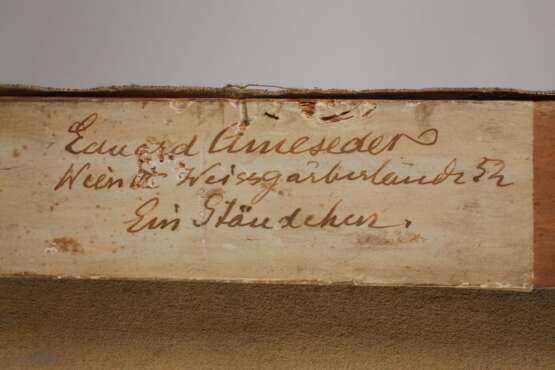 Eduard Ameseder
Wien III Weissgärberlände 52
Ein Ständchen.